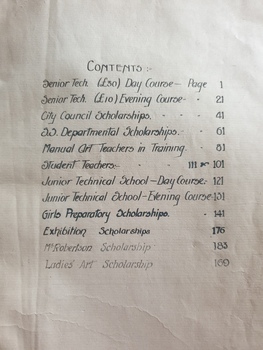 CONTENTS :-
Senior Tech. (£30) Day Course - Page 1
Senior Tech. (£10) Evening Course - - 21
City Council Scholarships. - 41
Departmental Scholarships. - 61
Manual Art Teachers in Training. - 81
Student Teachers:- 111 101
Junior Technical School - Day Course - 121
Junior Technical School - Evening Course 131
Girls Preparatory Scholarships. - 141
Exhibition Scholarships 176
McRobertson Scholarship 183
"Ladies' Art" Scholarship 169